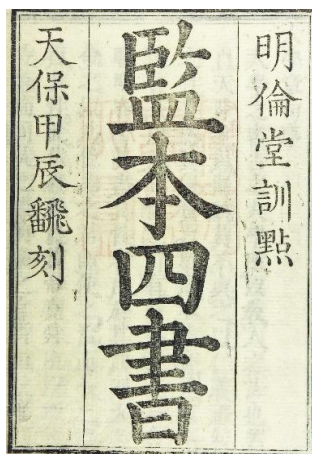 明倫堂訓點
監本四書
天保甲辰飜刻